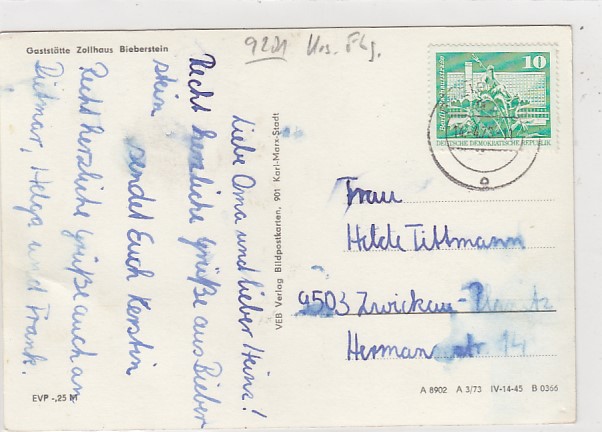 Gaststätte Zollhaus Bieberstein
9201
Liebe Oma und lieber Heinz!
Recht herzliche Grüße aus Bieber
stein
sendet Euch Kerstin
Recht herzliche Grüße auch an
Dietmar, Helga und Frank.
EVP -,25 M
VEB Verlag Bildpostkarten, 901 Karl-Marx-Stadt
10
DEUTSCHE DEMOKRATISCHE REPUBLIK
Frau
Hilde Tittmann
9503 Zwickau-
Hermannstr. 14
A 8902 A 3/73 IV-14-45 B 0366